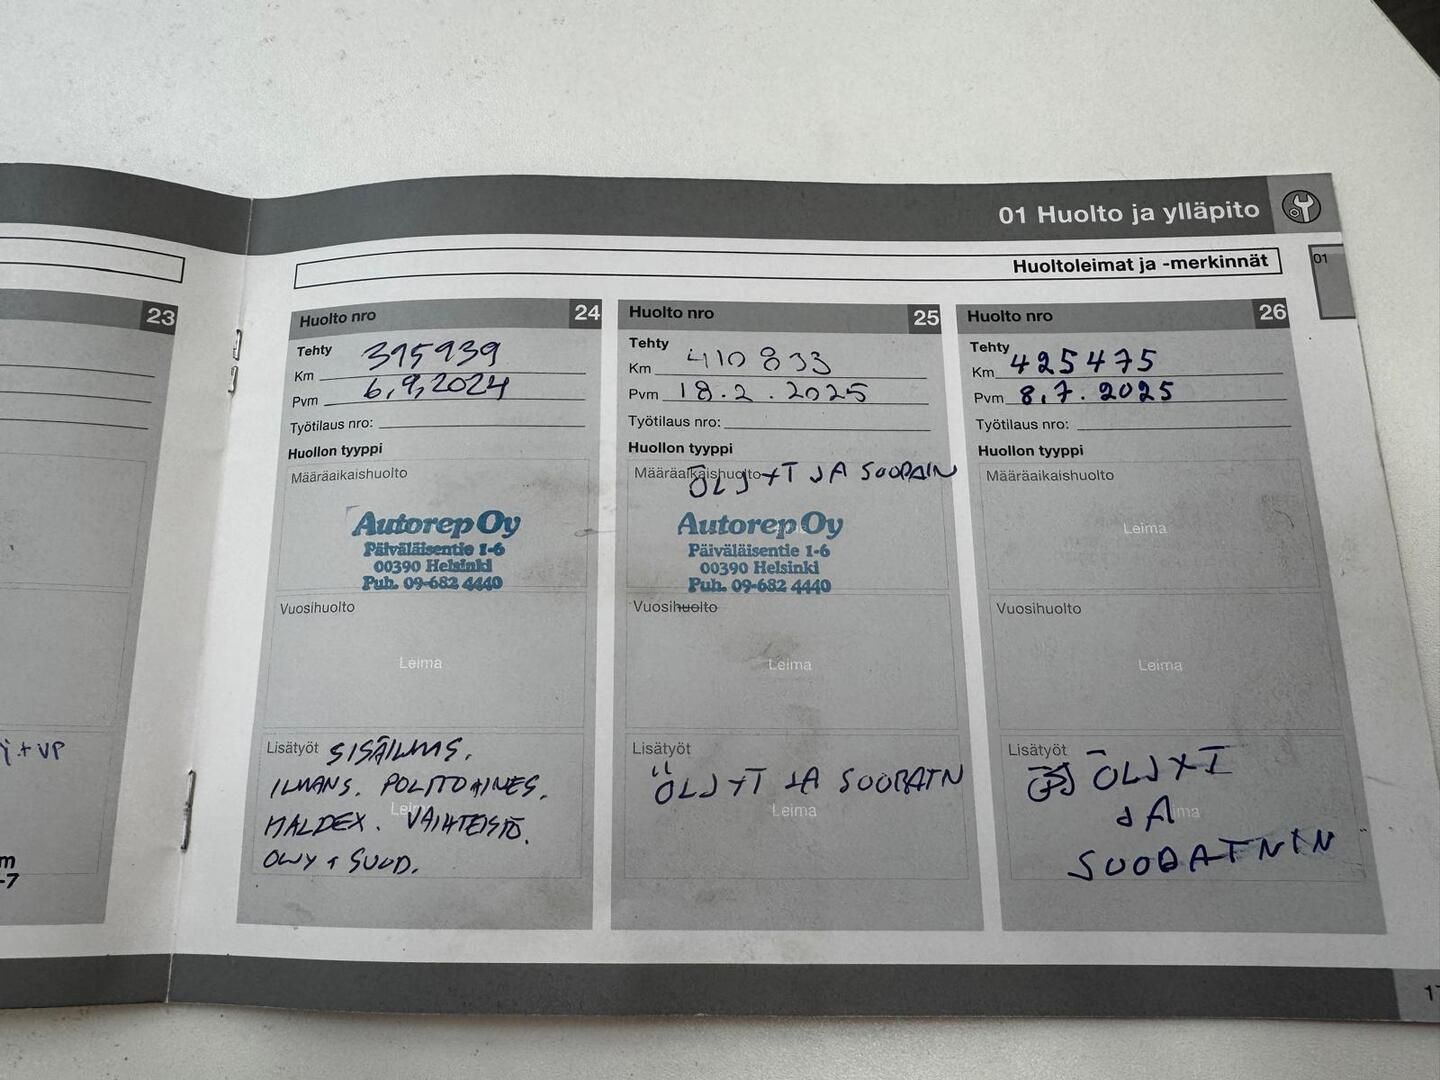 01 Huolto ja ylläpito
01
Huoltoleimat ja -merkinnät
23
i + VP
m
-7
Huolto nro 24
Tehty
Km 395939
Pvm 6.9.2024
Työtilaus nro:
Huollon tyyppi
Määräaikaishuolto
Autorep Oy
Päiväläisentie 1-6
00390 Helsinki
Puh. 09-682 4440
Vuosihuolto
Leima
Lisätyöt SISÄILMS.
ILMANS. POLTTOAINES.
HALDEX. VAIHTEISTO.
ÖLJY + SUOD.
Huolto nro 25
Tehty
Km 410833
Pvm 18.2.2025
Työtilaus nro:
Huollon tyyppi
Määräaikaishuolto
ÖLJYT JA SUODAIN
Autorep Oy
Päiväläisentie 1-6
00390 Helsinki
Puh. 09-682 4440
Vuosihuolto
Leima
Lisätyöt
ÖLJYT JA SUODATN
Leima
Huolto nro 26
Tehty
Km 425475
Pvm 8.7.2025
Työtilaus nro:
Huollon tyyppi
Määräaikaishuolto
Leima
Vuosihuolto
Leima
Lisätyöt
ÖLJYT
JA
SUODATNIN
17